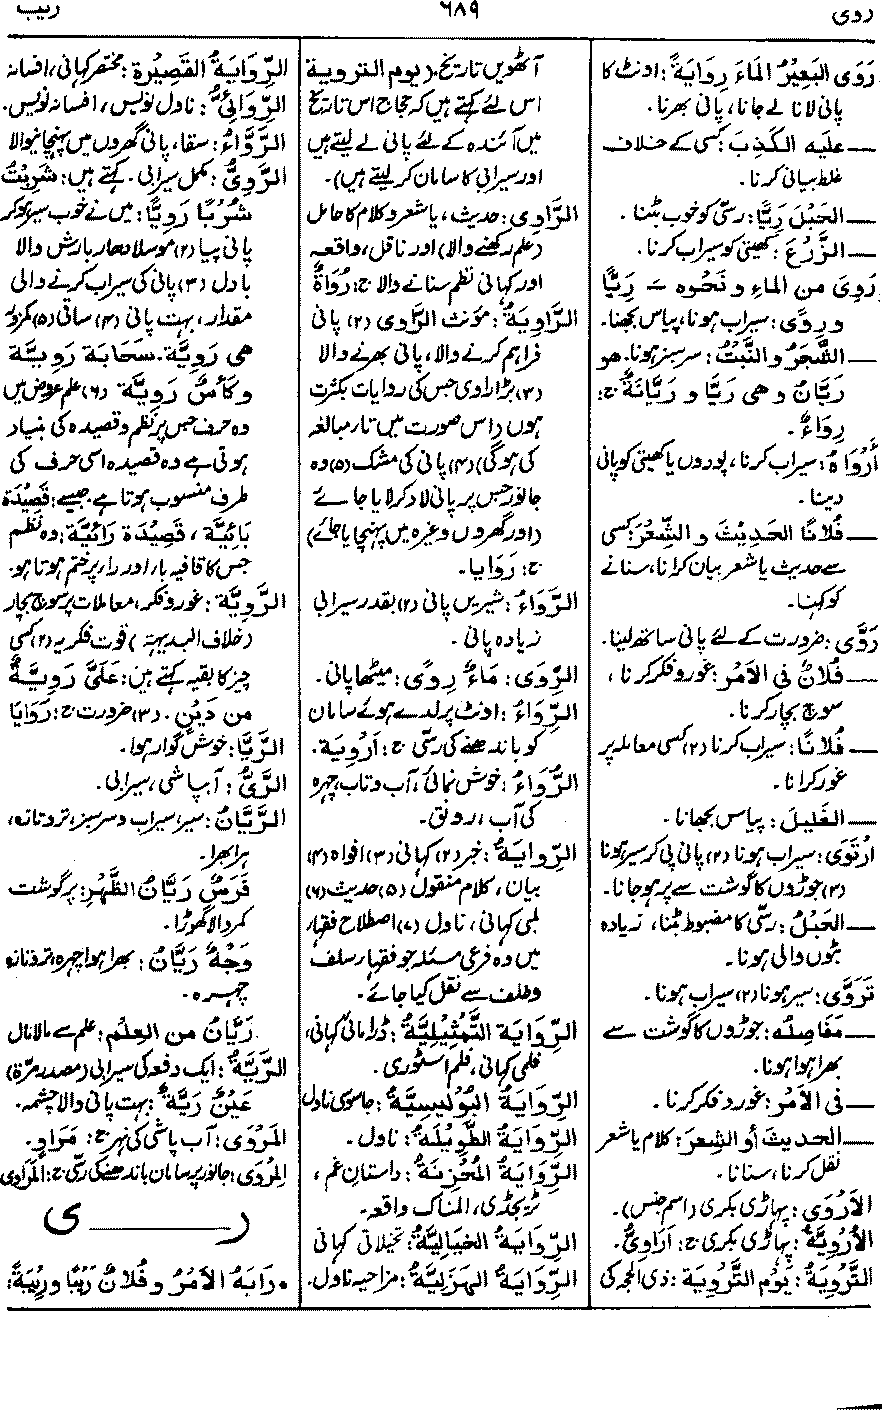 روی
٦٨٩
ریب
رَوَى البَعِیْرُ المَاءَ رِوَایَةً: اونٹ کا
پانی لانا لے جانا، پانی بھرنا۔
— عَلَیه الکَذِبَ: کسی کے خلاف
غلط بیانی کرنا۔
— الحَبْلَ رَیًّا: رسّی کو خوب بٹنا۔
— الزَّرْعَ: کھیتی کو سیراب کرنا۔
رَوِیَ من الماءِ و نَحْوِه — رِیًّا
و رِوًی: سیراب ہونا، پیاس بجھنا۔
— الشَّجَرُ و النَّبْتُ: سرسبز ہونا۔ هو
رَیَّانُ و هی رَیَّا و رَیَّانَةٌ ج:
رِوَاءٌ۔
أَرْوَاهُ: سیراب کرنا، پودوں یا کھیتی کو پانی
دینا۔
— فُلَانًا الحَدِیْثَ و الشِّعْرَ: کسی
سے حدیث یا شعر بیان کرانا، سنانے
کو کہنا۔
رَوَّی: ضرورت کے لئے پانی ساتھ لینا۔
— فُلَانٌ فی الأمْرِ: غور و فکر کرنا،
سوچ بچار کرنا۔
— فُلَانًا: سیراب کرنا (٢) کسی معاملہ پر
غور کرانا۔
— الغَلِیلَ: پیاس بجھانا۔
ارْتَوَی: سیراب ہونا (٢) پانی پی کر سیر ہونا
(٣) جوڑوں کا گوشت سے پر ہو جانا۔
— الحَبْلُ: رسّی کا مضبوط بٹنا، زیادہ
بٹوں والی ہونا۔
تَرَوَّی: سیر ہونا (٢) سیراب ہونا۔
— مَفَاصِلُه: جوڑوں کا گوشت سے
بھرا ہوا ہونا۔
— فی الأمْرِ: غور و فکر کرنا۔
— الحدیثَ أو الشِّعْرَ: کلام یا شعر
نقل کرنا، سنانا۔
الأَرْوَی: پہاڑی بکری (اسم جنس)۔
الأُرْوِیَّةُ: پہاڑی بکری ج: أَرَاوِیُّ۔
التَّرْوِیَةُ: یَوْمُ التَّرْوِیَة: ذی الحجہ کی
آٹھویں تاریخ۔ (یوم الترویة
اس لئے کہتے ہیں کہ حجاج اس تاریخ
میں آئندہ کے لئے پانی لے لیتے ہیں
اور سیرابی کا سامان کر لیتے ہیں)۔
الرَّاوِی: حدیث، یا شعر و کلام کا حامل
(علم رکھنے والا) اور ناقل، واقعہ
اور کہانی نظم سنانے والا ج: رُوَاةٌ
الرَّاوِیَةُ: مؤنث الرَّاوی (٢) پانی
فراہم کرنے والا، پانی بھرنے والا
(٣) بڑا راوی جس کی روایات بکثرت
ہوں (اس صورت میں تا، مبالغہ
کی ہوگی) (٤) پانی کی مشک (٥) وہ
جانور جس پر پانی لاد کر لایا جائے
(اور گھروں وغیرہ میں پہنچایا جائے)
ج: رَوَایا۔
الرَّوَاءُ: شیریں پانی (٢) بقدر سیرابی
زیادہ پانی۔
الرِّوَی: مَاءٌ رِوًی: میٹھا پانی۔
الرِّوَاءُ: اونٹ پر لدے ہوئے سامان
کو باندھنے کی رسّی ج: أَرْوِیَة۔
الرُّوَاءُ: خوش نمائی، آب و تاب، چہرہ
کی آب، رونق۔
الرِّوَایَةُ: خبر (٢) کہانی (٣) افواہ (٤)
بیان، کلام منقول (٥) حدیث (٦)
لمبی کہانی، ناول (٧) اصطلاح فقہاء
میں وہ فرعی مسئلہ جو فقہاء سلف
و خلف سے نقل کیا جائے۔
الرِّوَایَة التَّمْثِیْلِیَّة: ڈرامائی کہانی،
فلمی کہانی، فلم اسٹوری۔
الرِّوَایَةُ البُوْلِیسِیَّةُ: جاسوسی ناول
الرِّوَایَةُ الطَّوِیْلَةُ: ناول۔
الرِّوَایَةُ المُحْزِنَةُ: داستانِ غم،
ٹریجڈی، المناک واقعہ۔
الرِّوَایَةُ الخَیَالِیَّةُ: تخیلاتی کہانی
الرِّوَایَةُ الهَزْلِیَّةُ: مزاحیہ ناول۔
الرِّوَایَةُ القَصِیْرَة: مختصر کہانی، افسانہ
الرِّوَائِیُّ: ناول نویس، افسانہ نویس۔
الرَّوَّاءُ: سقا، پانی گھروں میں پہنچانیوالا
الرَّوِیُّ: مکمل سیرابی۔ کہتے ہیں: شَرِبْتُ
شُرْبًا رَوِیًّا: میں نے خوب سیر ہو کر
پانی پیا (٢) موسلا دھار بارش والا
بادل (٣) پانی کی سیراب کرنے والی
مقدار، بہت پانی (٤) ساقی (٥) کمزور
هی رَوِیَّة۔ سَحَابَة رَوِیَّة
و کَأْسٌ رَوِیَّة (٦) علم عروض میں
وہ حرف جس پر نظم و قصیدہ کی بنیاد
ہوتی ہے وہ قصیدہ اسی حرف کی
طرف منسوب ہوتا ہے۔ جیسے: قَصِیْدَة
بَائِیَّة، قَصِیْدَة رَائِیَّة: وہ نظم
جس کا قافیہ باء اور راء پر ختم ہوتا ہو۔
الرَّوِیَّة: غور و فکر، معاملات پر سوچ بچار
(خلاف البدیهة) قوت فکریہ (٢) کسی
چیز کا بقیہ کہتے ہیں: عَلَیَّ رَوِیَّةٌ
من دَیْنٍ۔ (٣) ضرورت ج: رَوَایَا
الرَّیَّا: خوش گوار ہوا۔
الرَّیُّ: آب پاشی، سیرابی۔
الرَّیَّانُ: سیر، سیراب و سرسبز، تر و تازہ،
ہرا بھرا۔
فَرَسٌ رَیَّانُ الظَّهْرِ: پر گوشت
کمر والا گھوڑا۔
وَجْهٌ رَیَّانُ: بھرا ہوا چہرہ، تر و تازہ
چہرہ۔
رَیَّانُ من العِلْمِ: علم سے مالا مال
الرَّیَّةُ: ایک دفعہ کی سیرابی (مصدر مرّة)
عَیْنٌ رَیَّةٌ: بہت پانی والا چشمہ۔
المَرْوَی: آب پاشی کی نہر ج: مَرَاوٍ۔
المِرْوَی: جانور پر سامان باندھنے کی رسّی ج: المَرَاوِی
ر — ی
• رَابَهُ الأَمْرُ و فُلَانٌ رَیْبًا و رِیْبَةً: